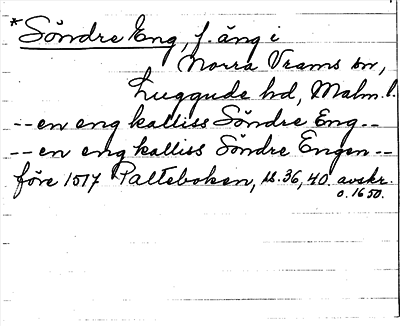 *Söndre Eng, f. äng i
Norra Vrams sn,
Luggude hd, Malm. l.
-- en eng kalliss Söndre Eng --
-- en eng kalliss Söndre Engen --
före 1517 Palteboken, s. 36, 40. avskr.
o. 1650.